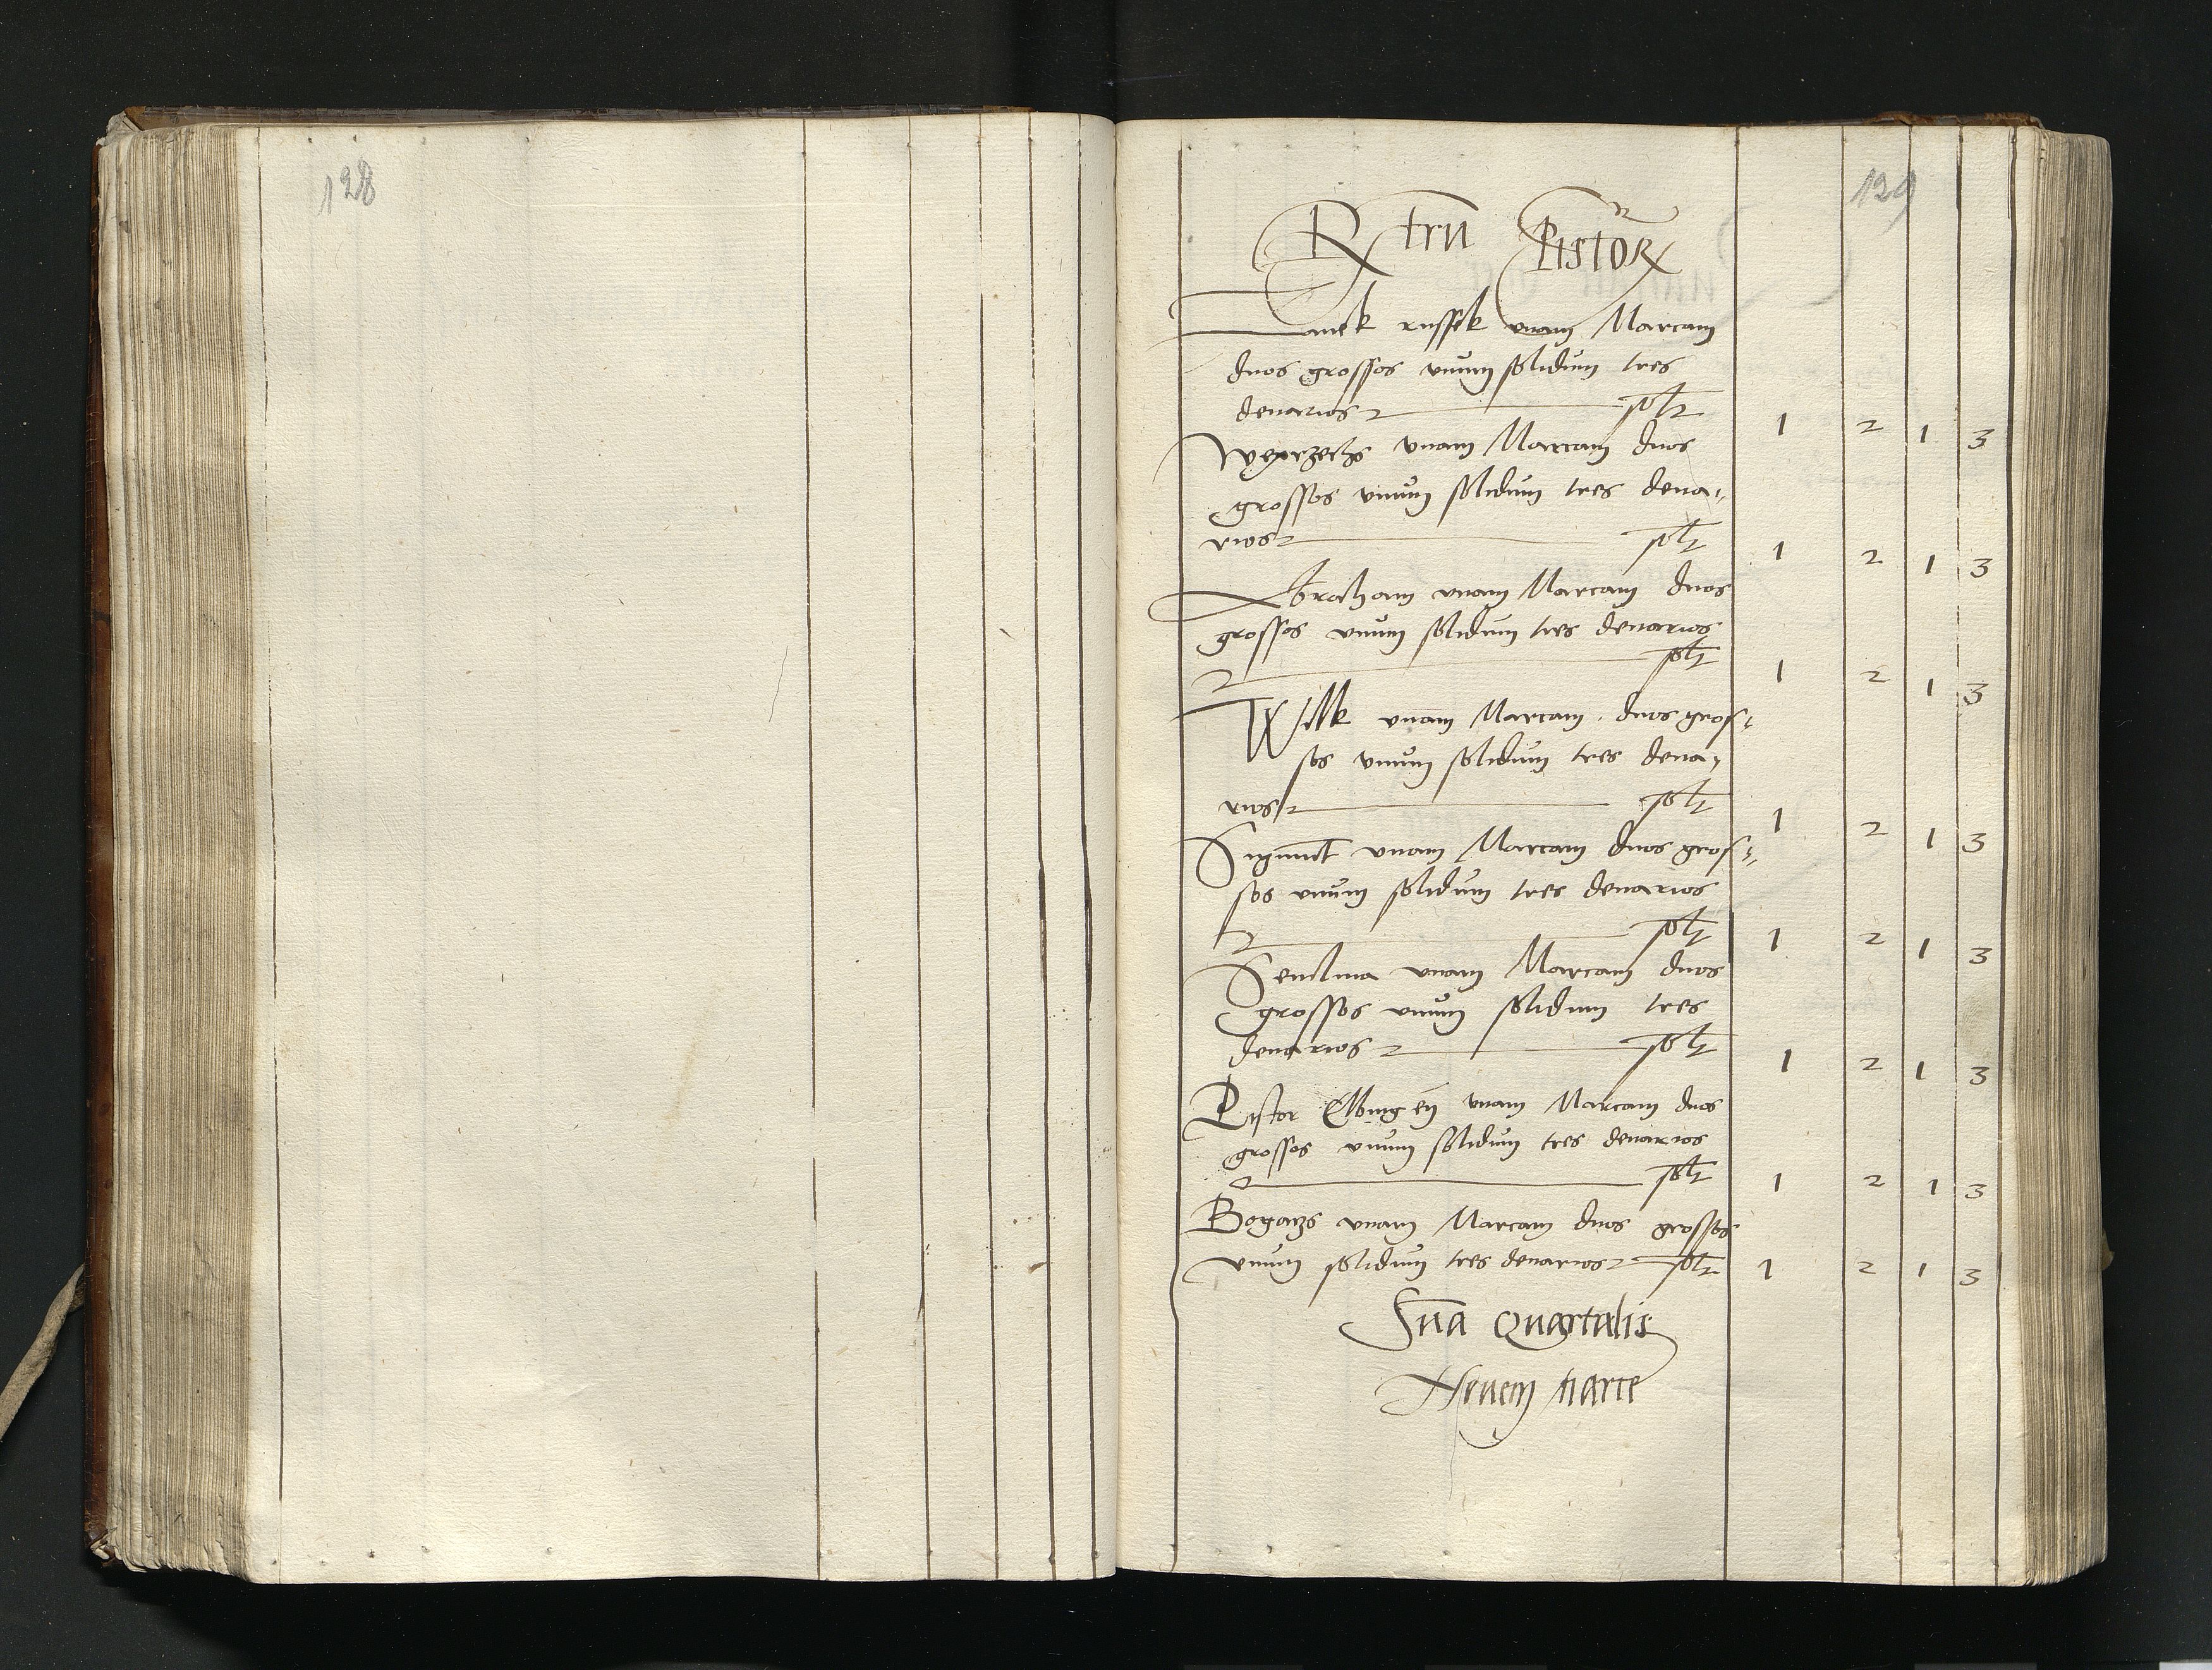 128
129
Rxtru Pistorx
Janek russek unam Marcam
duos grossos unum solidum tres
denarios solt 1 2 1 3
Weprzechs unam Marcam duos
grossos unum solidum tres dena-
rios solt 1 2 1 3
Abraham unam Marcam duos
grossos unum solidum tres denarios
solt 1 2 1 3
Wilk unam Marcam duos gros-
sos unum solidum tres dena-
rios solt 1 2 1 3
Sigmunt unam Marcam duos gros-
sos unum solidum tres denarios
solt 1 2 1 3
unam Marcam duos
grossos unum solidum tres
denarios solt 1 2 1 3
Pistor Elbingen unam Marcam duos
grossos unum solidum tres denarios
solt 1 2 1 3
Bogaczs unam Marcam duos grossos
unum solidum tres denarios solt 1 2 1 3
Sūa Quartalis
Novem marce